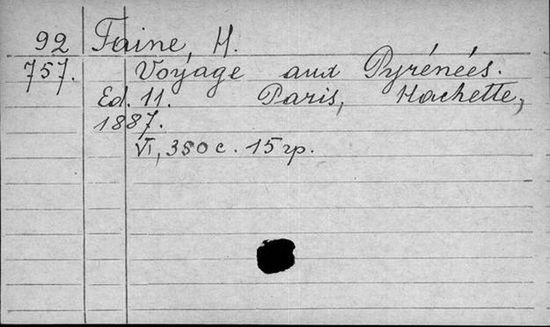 92 Taine, H.
757. Voyage aux Pyrénées.
Ed. 11. Paris, Hachette,
1887.
VI, 350 с. 15 гр.